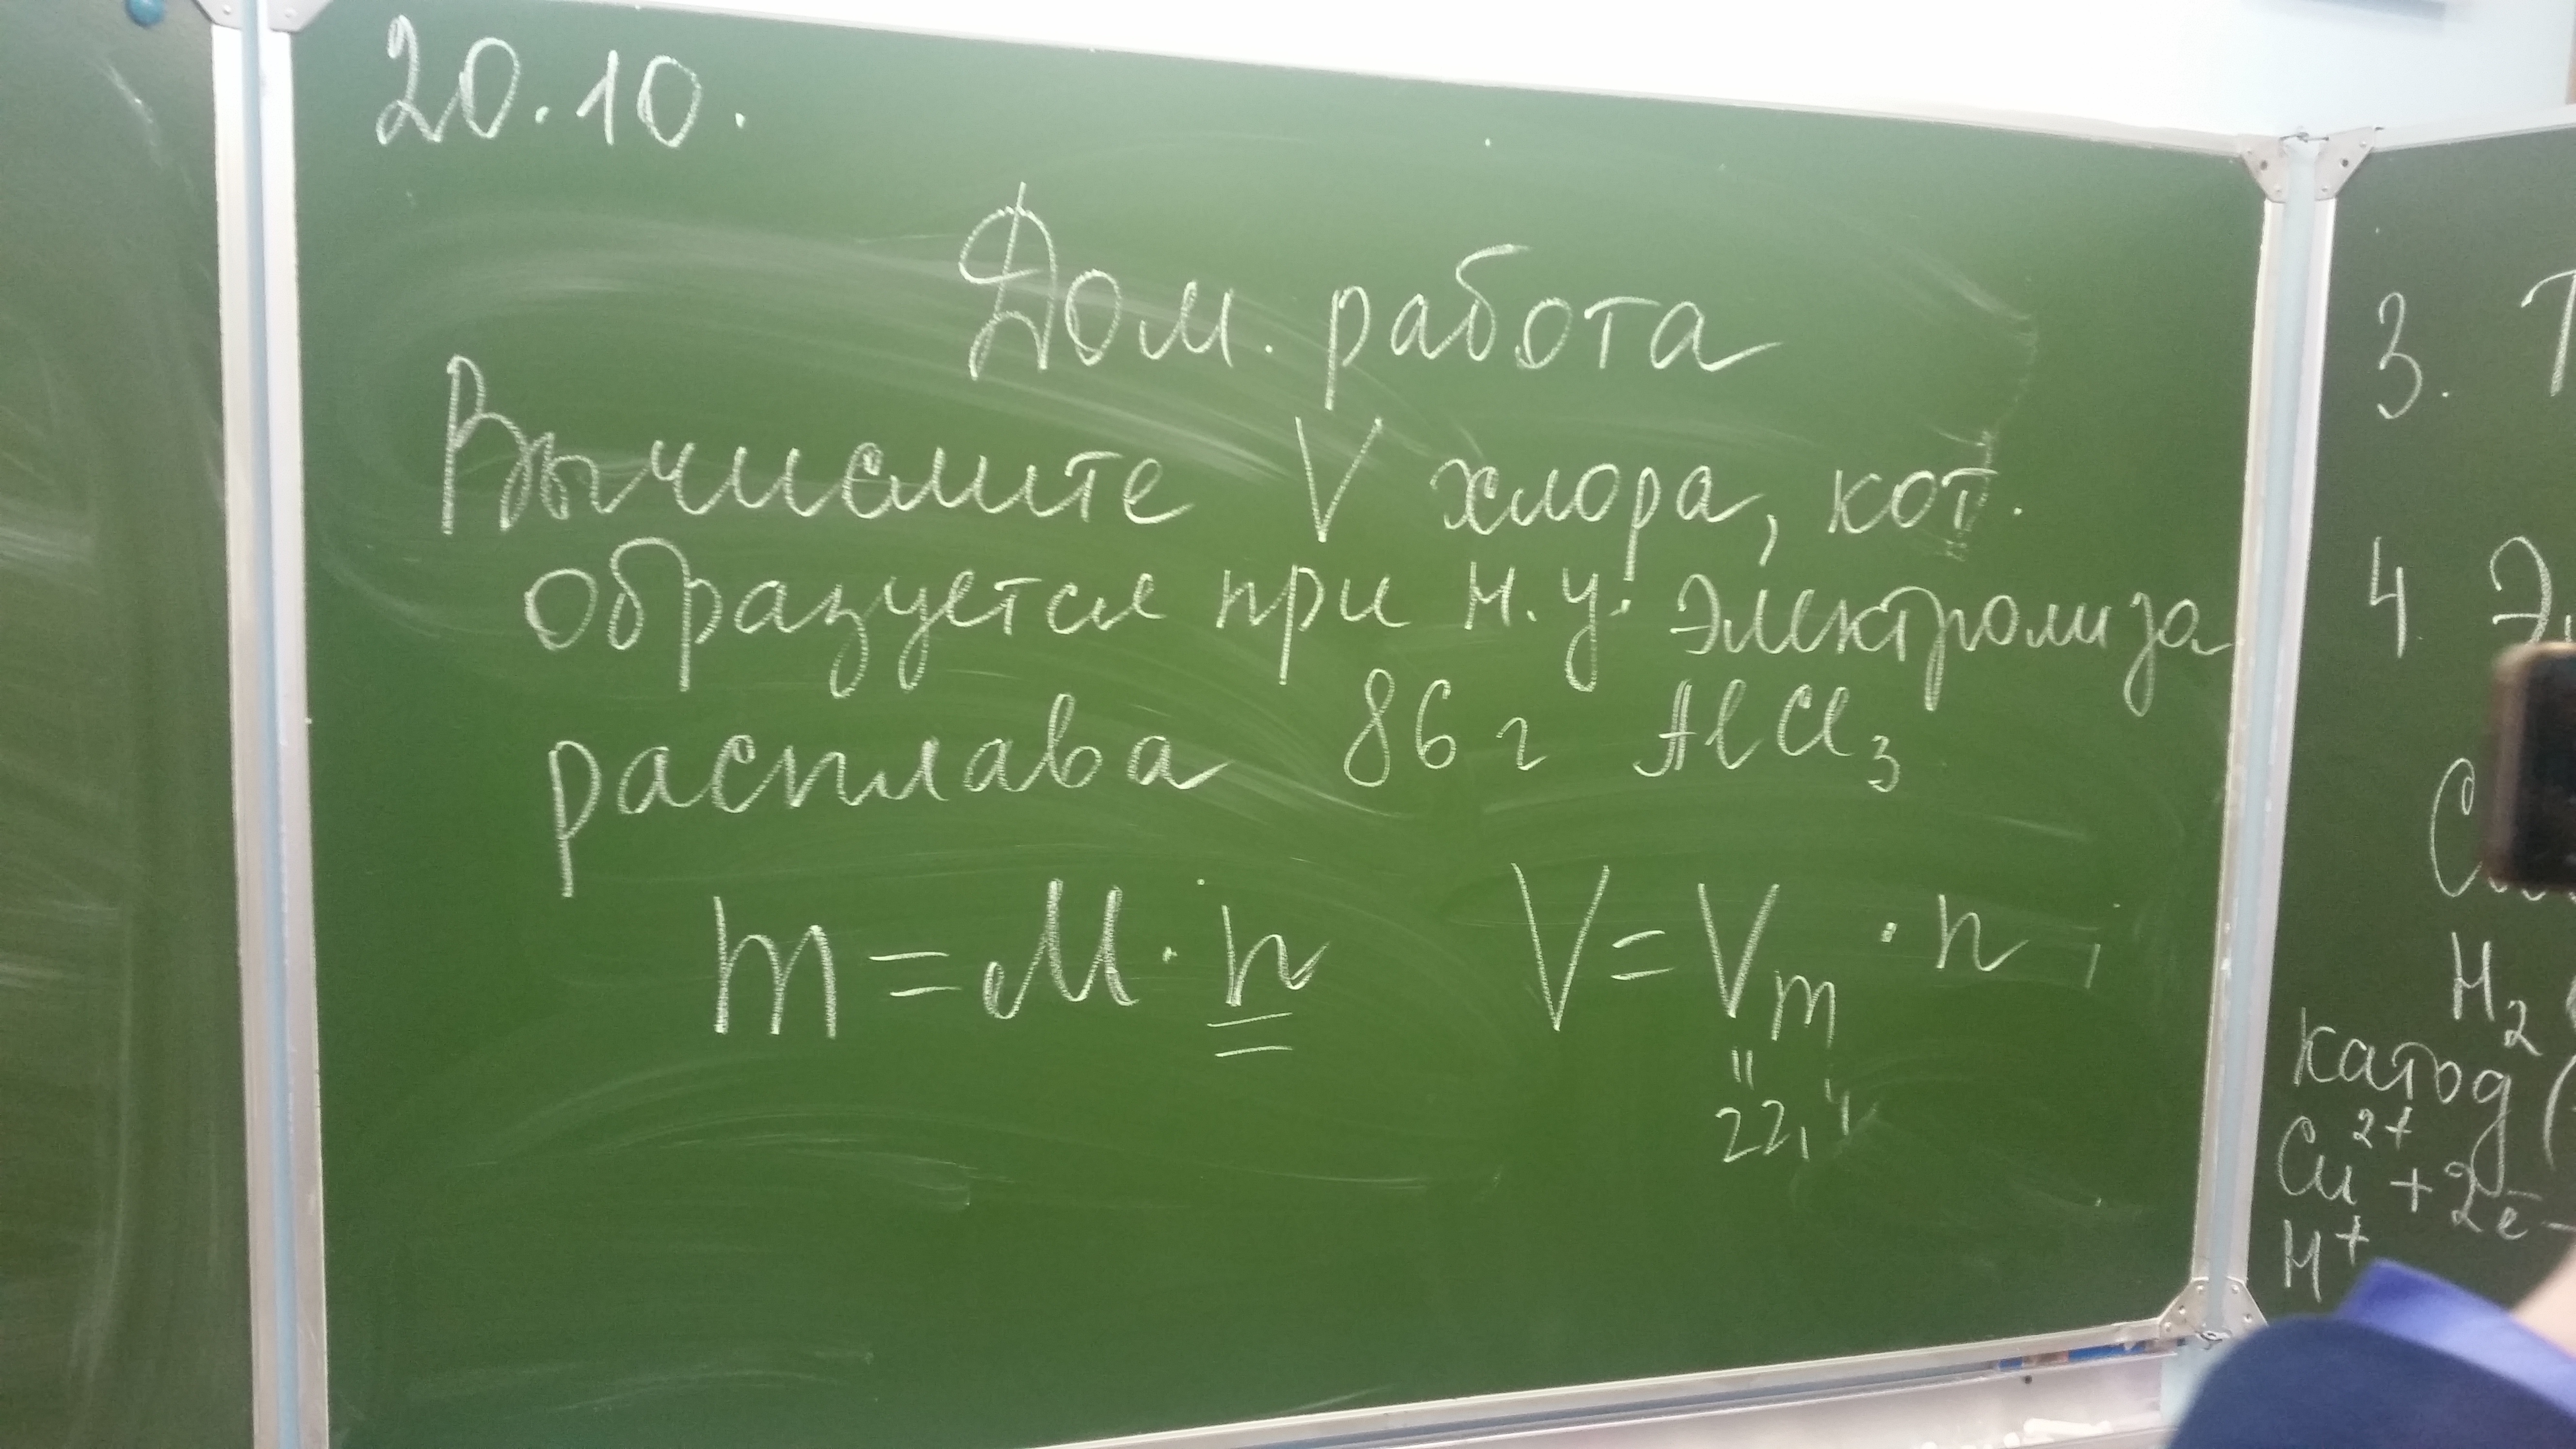 20.10.
Дом. работа
Вычислите V хлора, кот.
образуется при н.у. электролиза
расплава 86 г AlCl3
m = M · n V = Vm · n
"
22,4
3. Т
4 Э
H2
катод (
Cu2+ + 2e-
H+